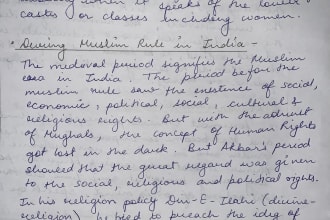 when it speaks of the lower
castes or classes including women.
• During Muslim Rule in India -
The medoval period signifies the Muslim
era in India. The period before the
muslim rule saw the existence of social,
economic, political, social, cultural &
religious rights. But with the advent
of Mughals, the concept of Human Rights
got lost in the dark. But Akbar's period
showed that the great regard was given
to the social, religious and political rights.
In his religion policy Din-E-Ilahi (divine
religion) he tried to preach the idea of